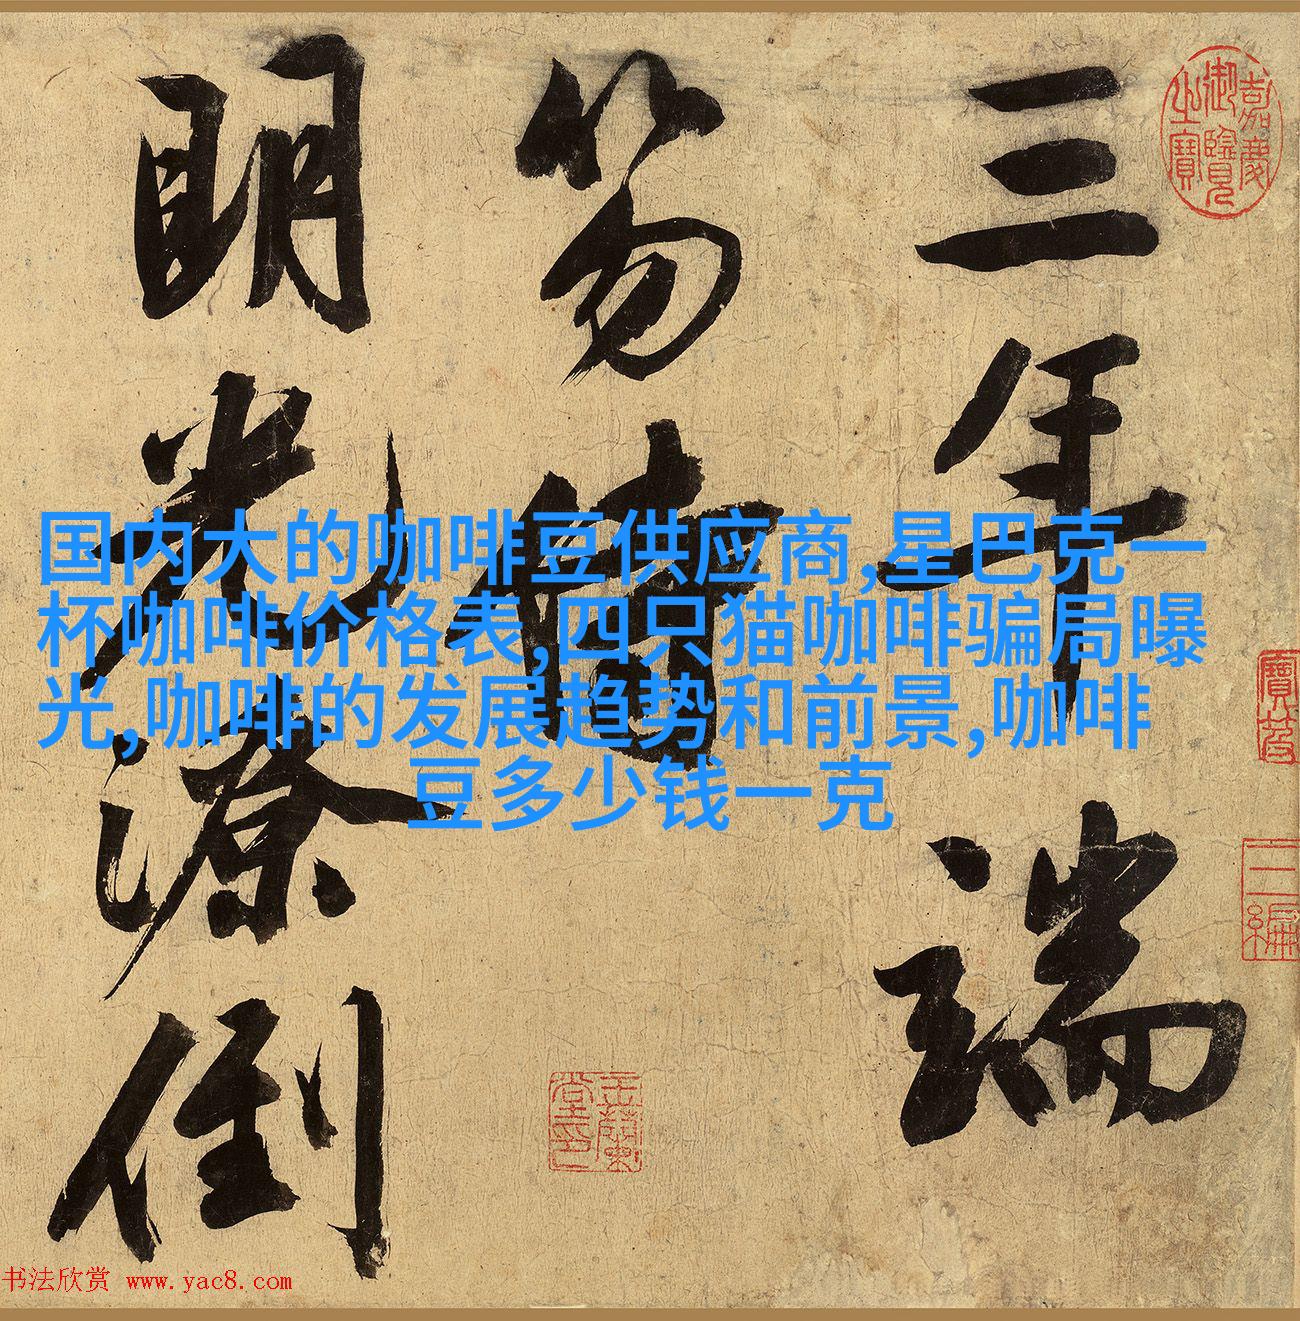 三年端
笏情
朗光潦倒
嘉慶
御覽
之寶
國内大的咖啡豆供应商,星巴克一
杯咖啡价格表,四只猫咖啡骗局曝
光,咖啡的发展趋势和前景,咖啡
豆多少钱一克
書法欣赏 www.yac8.com